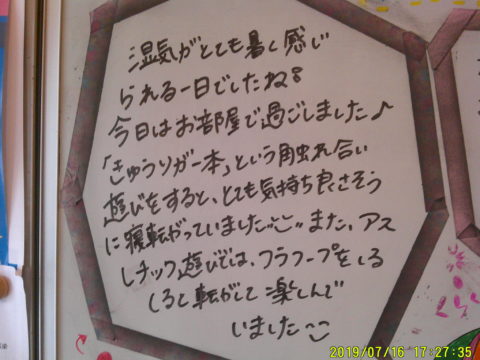 湿気がとても暑く感じ
られる一日でしたね。
今日はお部屋で過ごしました♪
「きゅうりが一本」という触れ合い
遊びをすると、とても気持ち良くさそう
に寝転がっていました また、アス
レチック遊びでは、フラフープをしる
しると転がして楽しんで
いました
2019/07/16 17:27:35